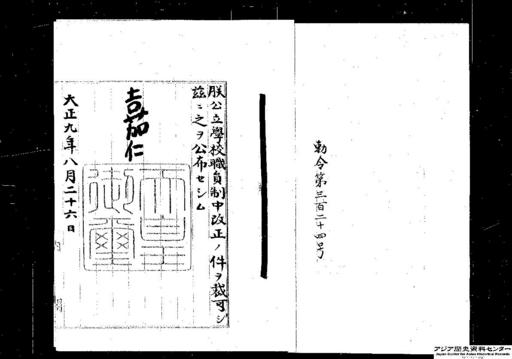 勅令第三百二十四号
朕公立學校職員制中改正ノ件ヲ裁可シ
茲ニ之ヲ公布セシム
嘉仁
天皇
御璽
大正九年八月二十六日
アジア歴史資料センター
Japan Center for Asian Historical Records